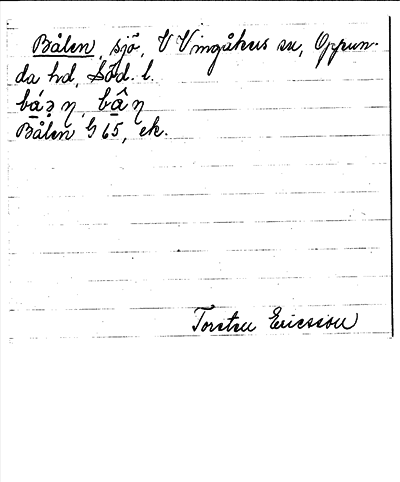 Bålen, sjö, V Vingåkers sn, Oppun-
da hd, Söd. l.
Bålen G 65, ek.
Torsten Ericsson